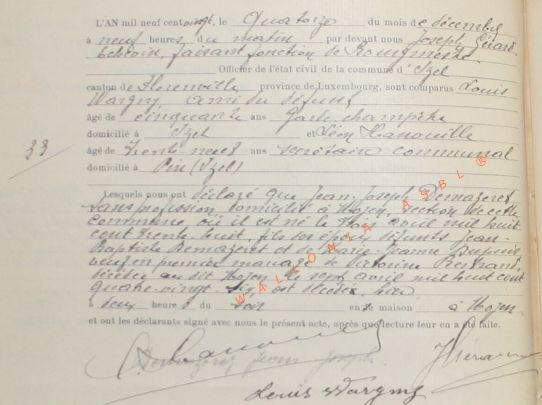 L'AN mil neuf cent vingt, le Quatorze du mois de décembre
à neuf heures du matin par devant nous Joseph Gérard
Echevin, faisant fonction de Bourgmestre
Officier de l'état civil de la commune d'Izel
canton de Florenville province de Luxembourg, sont comparus Louis
Wargny, ami du défunt
âgé de cinquante ans Garde champêtre
domicilié à Izel et Léon Hanouille
âgé de Trente neuf ans secrétaire communal
domicilié à Pin (Izel)
33
Lesquels nous ont déclaré que Jean Joseph Remazeret
sans profession domicilié à Moyen, section de cette
commune où il est né le trois avril mil huit
cent trente huit fils des époux défunts Jean-
Baptiste Remazeret et de Marie Jeanne
veuf en premier mariage de Victorine
décédée au dit Moyen le sept avril mil huit cent
quatre-vingt est décédé, hier
à deux heures du soir en sa maison à Moyen
et ont les déclarants signé avec nous le présent acte, après que lecture leur en a été faite.
Louis Wargny
WALLONIA ASBL ®